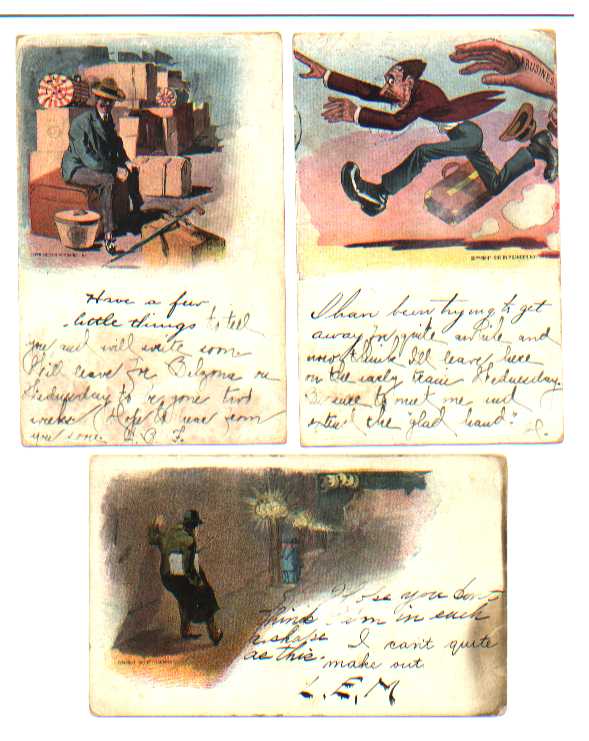 Have a few
little things to tell
you and will write soon
Will leave for on
Wednesday to be gone two
weeks. Hope to see soon
BUSINES
I have been trying to get
away for quite awhile and
now think I'll leave here
on the early train Wednesday.
Be sure to meet me and
the "glad hand".
I hope you don't
think I'm in such
a shape I can't quite
as this. make out
L. E. M